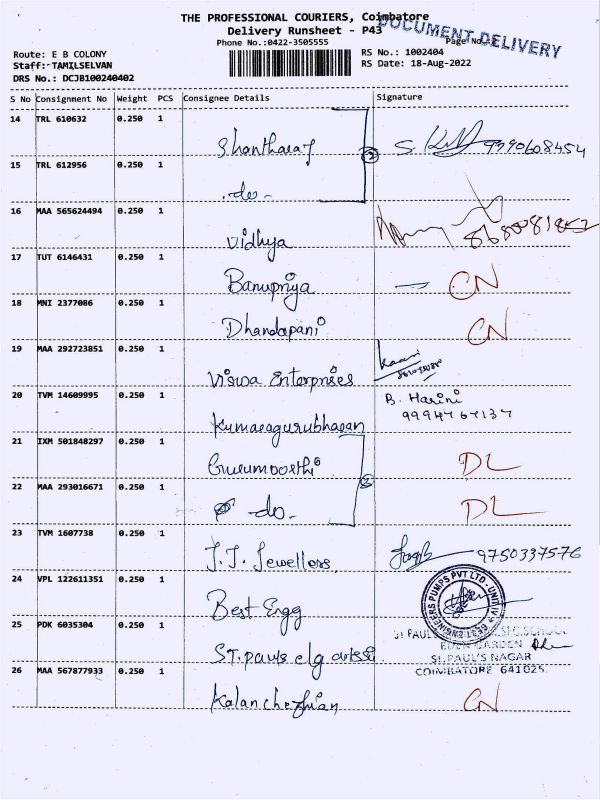 THE PROFESSIONAL COURIERS, Coimbatore
DOCUMENT DELIVERY
Delivery Runsheet - P43
Phone No.:0422-3505555
Page No.
Route: E B COLONY
RS No.: 1002404
Staff: TAMILSELVAN
RS Date: 18-Aug-2022
DRS No.: DCJB100240402
S No Consignment No Weight PCS Consignee Details Signature
14 TRL 610632 0.250 1
Shantharaj 2 9990608454
15 TRL 612956 0.250 1
do-
16 MAA 565624494 0.250 1
Vidhya
17 TUT 6146431 0.250 1
Banupriya CN
18 MNI 2377086 0.250 1
Dhandapani CN
19 MAA 292723851 0.250 1
Viswa Enterprises
20 TVM 14609995 0.250 1
B. Harini
9994767137
Kumaragurubharan
21 IXM 501848297 0.250 1
Gurumoorthi DL
22 MAA 293016671 0.250 1
do- 2 DL
23 TVM 1607738 0.250 1
J.J. Jewellers 9750337576
24 VPL 122611351 0.250 1
ENGINEERS PUMPS PVT LTD - UNIT IV
Best Engg
25 PDK 6035304 0.250 1
EDEN GARDEN
ST. pauls clg
ST. PAUL'S NAGAR
COIMBATORE 641025
26 MAA 567877933 0.250 1
Kalanchezhian CN